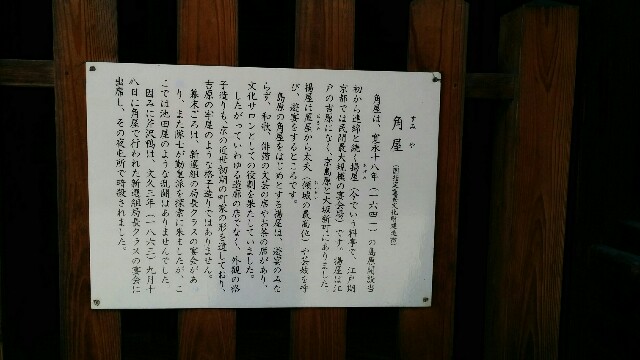 すみや
角屋（国指定重要文化財建造物）
角屋は、寛永十八年（一六四一）の島原開設当
初から連綿と続く揚屋（今でいう料亭で、江戸期
京都では民間最大規模の宴会場）です。揚屋は江
戸の吉原になく、京島原と大坂新町にありました。
揚屋は置屋から太夫（傾城の最高位）や芸妓を呼
び、遊宴をするところです。
島原の角屋をはじめとする揚屋は、遊宴のみな
らず、和歌、俳諧の文芸の席やお茶の席があり、
文化サロンとしての役割を果たしていました。
したがっていわゆる遊廓の店でなく、外観の格
子造りも、京の近世初期の町家の形を遺しており、
吉原の牢屋のような格子造りではありません。
幕末ごろは、新選組の局長クラスの宴会があ
り、また隊士が勤皇派を探索に来ましたが、こ
こでは池田屋のような乱闘はありませんでした。
因みに芹沢鴨は、文久三年（一八六三）九月十
八日に角屋で行われた新選組局長クラスの宴会に
出席し、その夜屯所で暗殺されました。